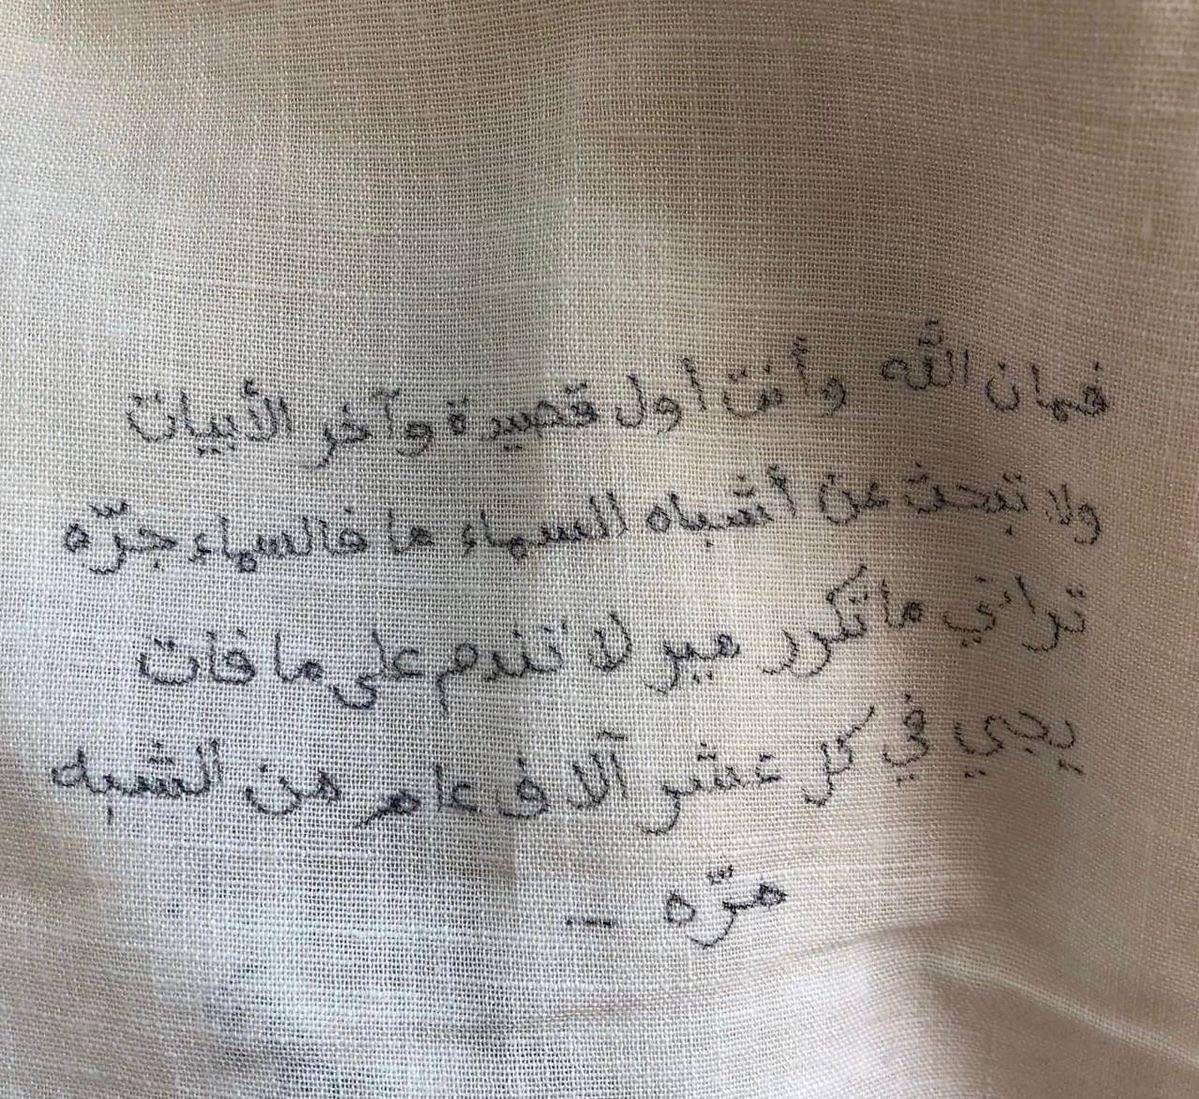 فمان الله وأنت أول قصيدة وآخر الأبيات
ولا تبحث عن أشباه السماء ما فالسماء جرّه
تراني ما تكرر مير لا تندم على ما فات
يجي في كل عشر آلاف عام من الشبه
مرّه ...